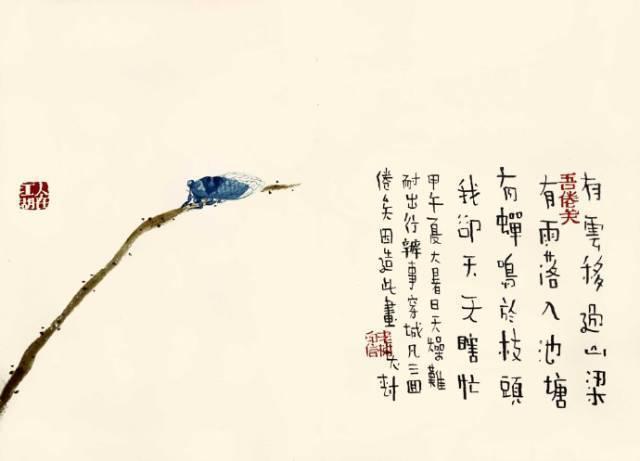 有雲移過山梁
吾倦矣
有雨落入池塘
有蟬鳴於枝頭
我卻天天瞎忙
甲午夏大暑日天燥難
耐出行辦事穿城凡三回
倦矣因造此畫大封
人在江湖